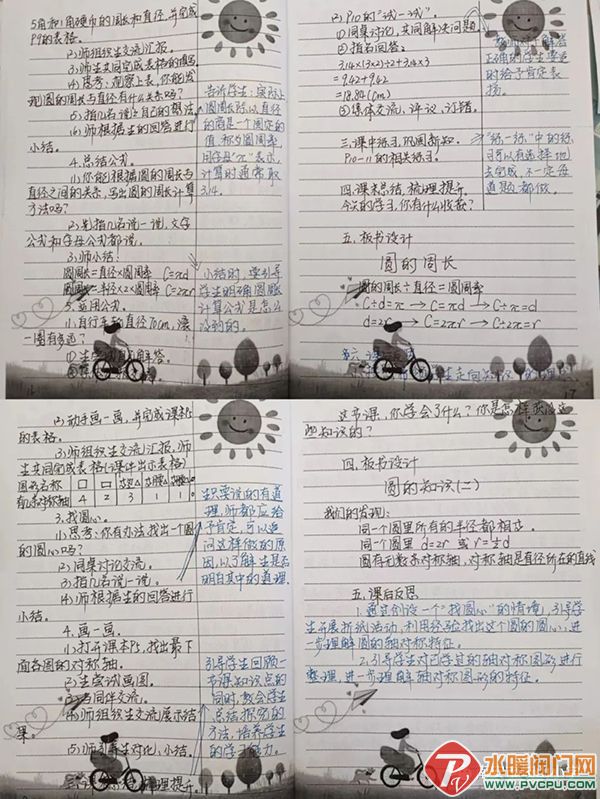 5角和1角硬币的周长和直径,并完成
P9的表格。
(2)师组织生交流汇报。
(3)师生共同完成表格的填写。
(4)思考:观察上表,你能发
现圆的周长与直径有什么关系吗?
(5)指几名说自己的想法
(6)师根据生的回答进行
小结。
4.总结公式。
(1)你能根据圆的周长与
直径之间的关系,写出圆的周长计算
方法吗?
(2)先指几名说一说,文字
公式和字母公式都说。
(3)师小结:
圆周长=直径×圆周率 C=πd
圆周长=半径×2×圆周率 C=2πr
5.运用公式。
一圈有多远?
告诉学生:实际上
圆周长除以直径
的商是一个固定的
值,称为圆周率,
用字母“π”表示,
计算时通常取
3.14.
小结时,要引导
学生明确圆周长
计算公式是怎么
得到的。
(2)P10的“试一试”。
①同桌讨论,共同解决问题
②指名回答。
3.14×(3×2)÷2+3.14×3
=9.42+9.42
=18.84(cm)
③集体交流、评议、订错。
正确的学生要适
时给予肯定表
扬。
三.课中练习,巩固新知。
P10-11的相关练习。
“练一练”中的练
习可以有选择地
去完成,不一定每
道题都做。
四.课末总结,梳理提升。
今天的学习,你有什么收获?
五.板书设计
圆的周长
圆的周长÷直径=圆周率
C÷d=π→C=πd→C÷π=d
d=2r→C=2πr→C÷2π=r
17
(3)动手画一画,并完成课本
的表格。
(3)师组织生交流汇报,师
生共同完成表格(课件出示表格)
图形名称
有几条对称轴 4 2 3 1 1
3.找圆心。
(1)思考:你有办法找出一个圆
的圆心吗?
(2)同桌讨论交流。
(3)指几名说一说。
(4)师根据生的回答进行
小结。
4.画一画。
(1)打开课本P5,找出最下
面各图的对称轴。
(2)生尝试画图
(3)与同伴交流。
(4)师组织生交流展示结
果。
生只要说的有道
理,师都应给
予肯定,可以追
问这样做的原
因,以了解生是否
明白其中的道理。
引导学生回顾一
节课知识点的
同时,教会学生
总结探究的
方法,培养学生
的学习能力。
这节课,你学会了什么?你是怎样获得这
些知识的?
四.板书设计
圆的知识(二)
我们的发现:
同一个圆里所有的半径都相互
同一个圆里 d=2r 或 r=½d
圆有无数条对称轴,对称轴是直径所在的直线
五.课后反思
1.通过创设一个“找圆心”的情境,引导学
生开展折纸活动,利用经验找出这个圆的圆心,进
一步理解圆的轴对称特征。
2.引导学生对已学过的轴对称图形进行
整理,进一步理解轴对称图形的特征。
水暖阀门网
WWW.PVCPU.COM